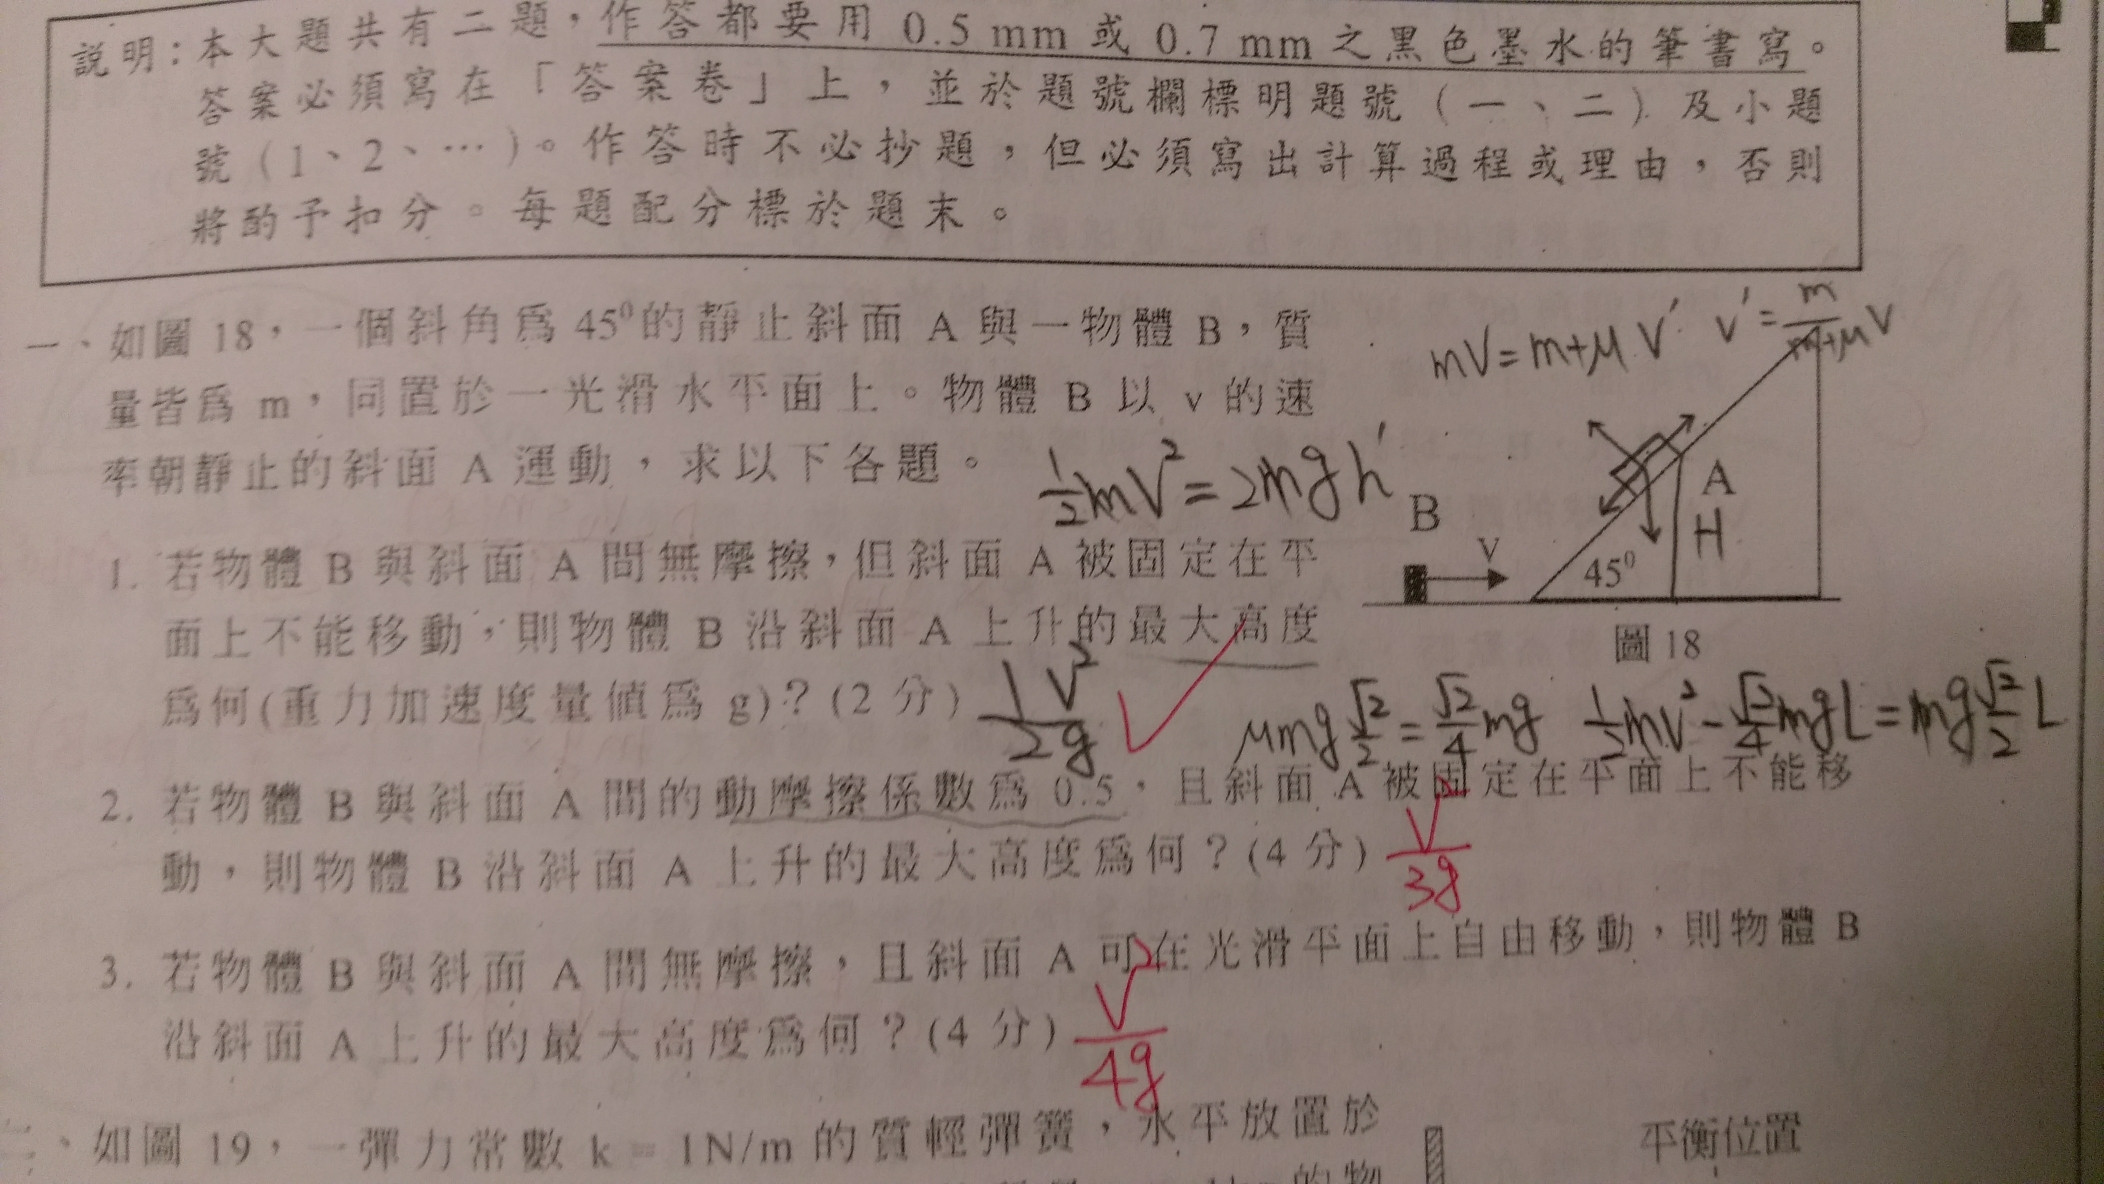 說明：本大題共有二題，作答都要用 0.5 mm 或 0.7 mm 之黑色墨水的筆書寫。
答案必須寫在「答案卷」上，並於題號欄標明題號（一、二）及小題
號（1、2、…）。作答時不必抄題，但必須寫出計算過程或理由，否則
將酌予扣分。每題配分標於題末。
mV=m+μ V' V'=m/(m+μ) V
一、如圖 18，一個斜角爲 45⁰的靜止斜面 A 與一物體 B，質
量皆爲 m，同置於一光滑水平面上。物體 B 以 v 的速
率朝靜止的斜面 A 運動，求以下各題。
½mV²=2mgh'
B
V
45⁰
A
H
圖 18
1. 若物體 B 與斜面 A 間無摩擦，但斜面 A 被固定在平
面上不能移動，則物體 B 沿斜面 A 上升的最大高度
爲何(重力加速度量值爲 g)？(2 分) 1V²/2g
μmg √2/2 = √2/4 mg ½mV² - √2/4 mgL = mg √2/2 L
2. 若物體 B 與斜面 A 間的動摩擦係數爲 0.5，且斜面 A 被固定在平面上不能移
動，則物體 B 沿斜面 A 上升的最大高度爲何？(4 分) V²/3g
3. 若物體 B 與斜面 A 間無摩擦，且斜面 A 可在光滑平面上自由移動，則物體 B
沿斜面 A 上升的最大高度爲何？(4 分) V²/4g
二、如圖 19，一彈力常數 k = 1N/m 的質輕彈簧，水平放置於
平衡位置
的物